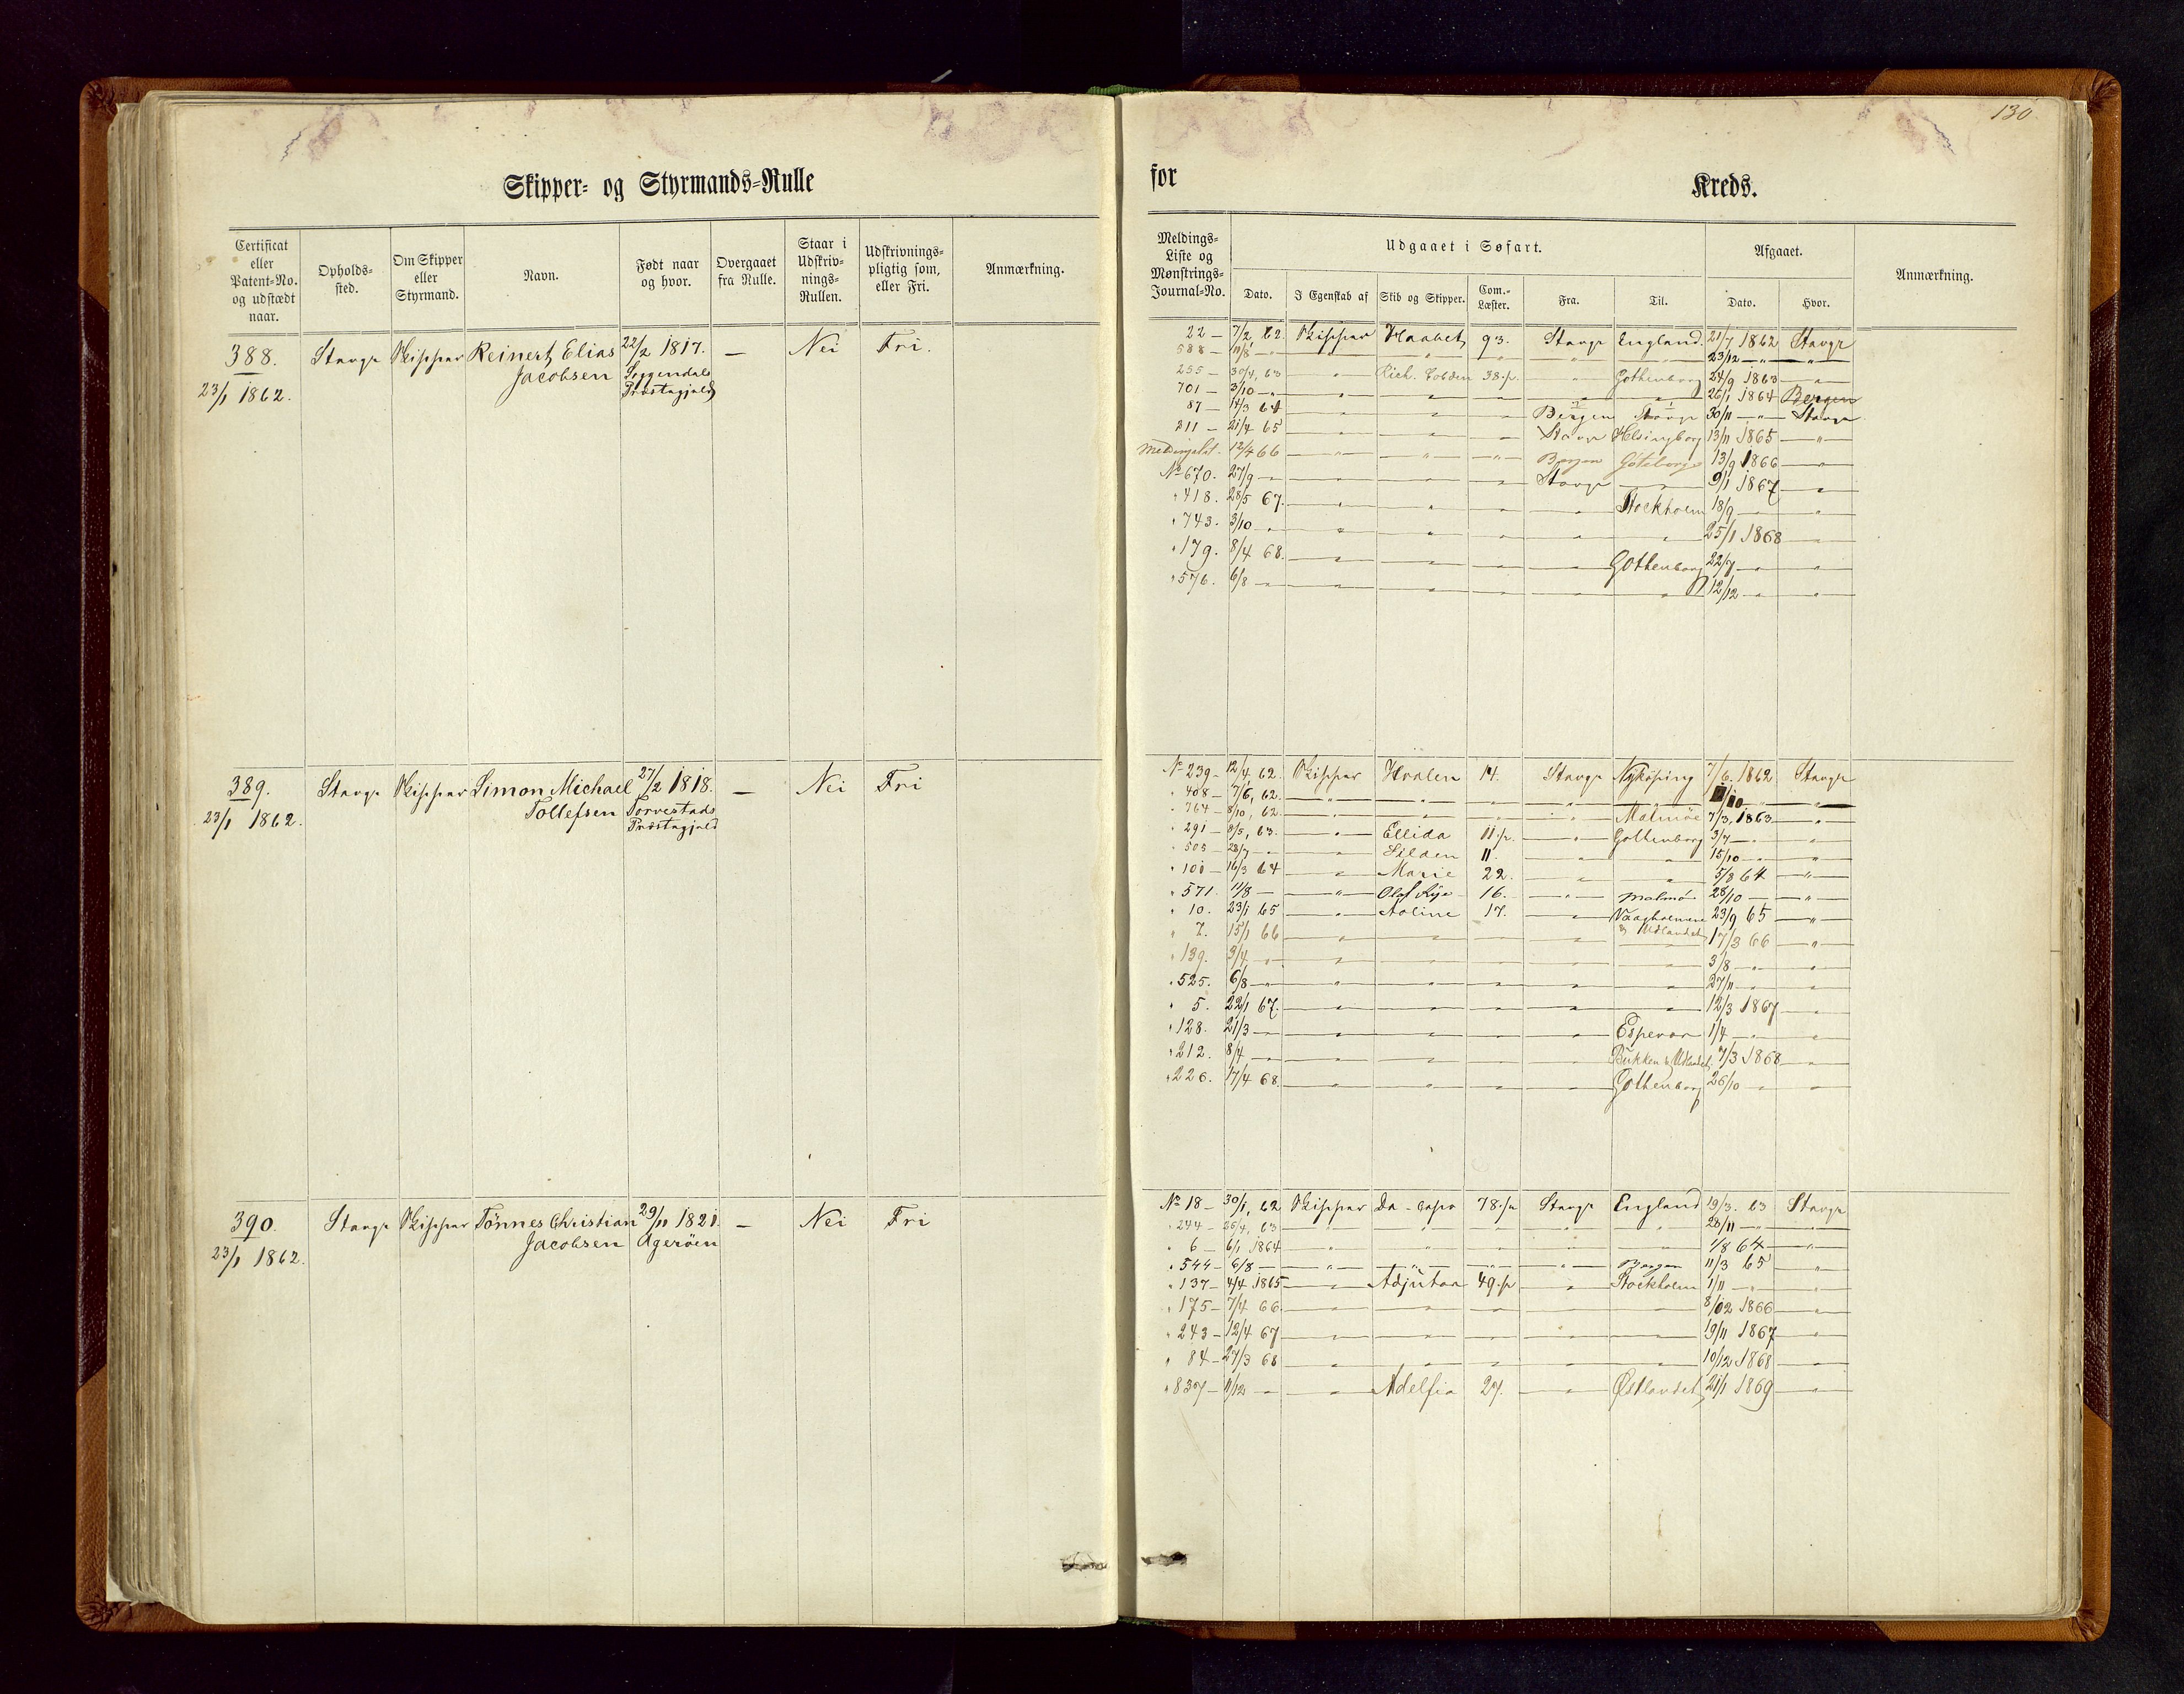 130
Skipper- og Styrmands-Rulle
for
Kreds.
Certificat eller Patent-No. og udstædt naar.
Opholds-sted.
Om Skipper eller Styrmand.
Navn.
Født naar og hvor.
Overgaaet fra Rulle.
Staar i Udskriv-nings-Rullen.
Udskrivnings-pligtig som, eller Fri.
Anmærkning.
Meldings-Liste og Mønstrings-Journal-No.
Udgaaet i Søfart.
Dato.
I Egenskab af
Skib og Skipper.
Com.-Læster.
Fra.
Til.
Afgaaet.
Dato.
Hvor.
Anmærkning.
388. Stavgr Skipper Reinert Elias 22/2 1817. — Nei Fri.
23/1 1862. Jacobsen Soggendals
Præstegjeld
22 — 7/2, 62. Skipper Haabet 93. Stavgr England. 21/7 1862 Stavgr
588 — 11/8 — " — " — " — " — " — 23/12 — " — " —
255 — 30/4, 63 — " — Rich. Cobden 38.p. — " — Gothenborg 24/9 1863 — " —
701 — 3/10 — " — " — " — " — " — " — 26/1 1864 Bergen
87 — 14/3 64 — " — " — " — Bergen Stavgr 30/11 — " — Stavgr
211 — 21/4 65 — " — " — " — Stavgr Helsingborg 13/11 1865 — " —
Meldingslst. 12/4 66 — " — " — " — Bergen Göteborg 13/9 1866 — " —
No 670. 27/9 — " — " — " — " — Stavgr — " — 9/1 1867 — " —
" 418. 28/5 67. — " — " — " — " — Stockholm 18/9 — " — " —
" 743. 3/10 — " — " — " — " — " — " — 25/1 1868 — " —
" 179. 8/4 68. — " — " — " — " — Gothenborg 22/7 — " — " —
" 576. 6/8 — " — " — " — " — " — " — 12/12 — " — " —
389. Stavgr Skipper Simon Michael 27/2 1818. — Nei Fri
23/1 1862. Tollefsen Torvestads
Præstegjeld
No 239 — 12/4, 62. Skipper Hvalen 14. Stavgr Nyköping 7/6. 1862 Stavgr
" 408 — 7/6, 62. — " — " — " — " — " — /10 — " — " —
" 764 — 8/10, 62. — " — " — " — " — Malmöe 7/3, 1863 — " —
" 291 — 8/5, 63. — " — Ellida 11.p. — " — Gothenborg 3/7 — " — " —
" 505 — 28/7 — " — " — Silden 11. — " — " — 15/10 — " — " —
" 101 — 16/3 64 — " — Marie 22. — " — " — 5/8 64 — " —
" 571. 11/8 — " — Olaf Rye 16. — " — Malmö 28/10 — " —
" 10. 23/1 65 — " — Aoline 17. — " — Vaagholmene 23/9 65 — " —
& Udlandet
" 7. 15/1 66 — " — " — " — " — " — 17/3 66 — " —
" 139. 3/4 — " — " — " — " — " — " — 3/8 — " — " —
" 525. 6/8 — " — " — " — " — " — " — 27/11 — " — " —
" 5. 22/1 67. — " — " — " — " — " — 12/3 1867 — " —
" 128. 21/3 — " — " — " — " — " — Espevær 1/4 — " — " —
" 212. 8/4 — " — " — " — " — " — Bukken & Udlandet 7/3 1868 — " —
" 226. 17/4 68. — " — " — " — " — Gothenborg 26/10 — " — " —
390. Stavgr Skipper Tönnes Christian 29/11 1821. — Nei Fri
23/1 1862. Jacobsen Agerøen
No 18 — 30/1, 62 Skipper Da-capo 78.p Stavgr England 19/3. 63 Stavgr
" 244 — 25/4, 63 — " — " — " — " — " — 28/11 — " — " —
" 6 — 6/1 1864 — " — " — " — " — " — 1/8 64 — " —
" 544 — 6/8 — " — " — " — " — Bergen 11/3 65 — " —
" 137 — 4/4 1865 — " — Adjutor 49.p — " — Stockholm 1/11 — " — " —
" 175 — 7/4 66 — " — " — " — " — " — 8/12 1866 — " —
" 243 — 12/4 67 — " — " — " — " — " — 19/11 1867 — " —
" 84 — 27/3 68 — " — " — " — " — " — 10/12 1868 — " —
" 837 — 11/12 — " — " — Adelfia 27. — " — Østlandet 21/1 1869 — " —